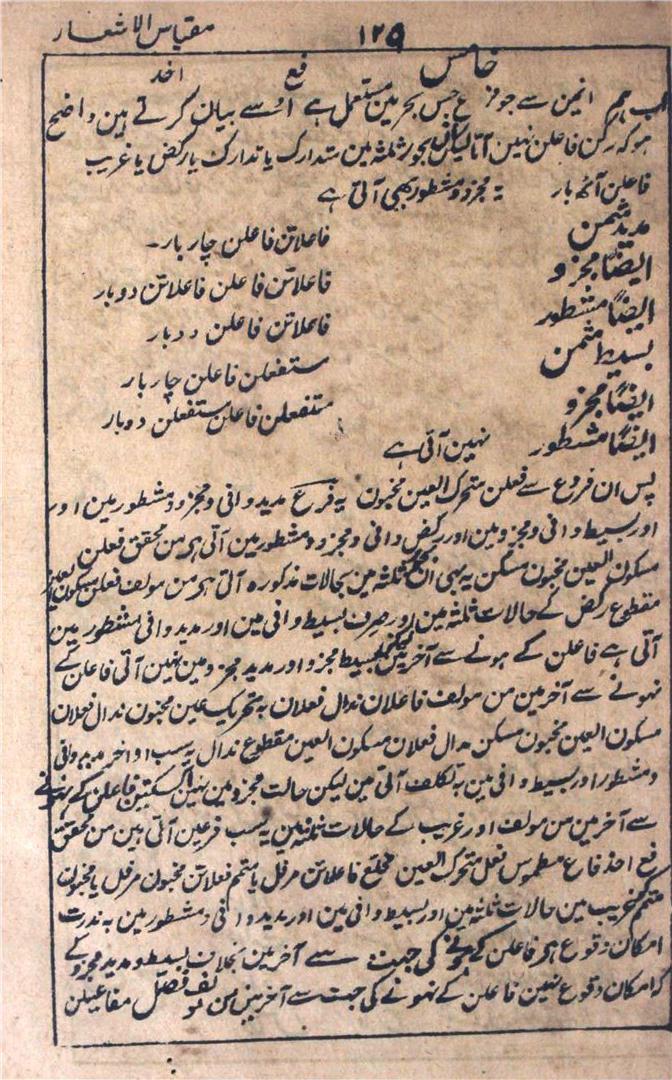 مقیاس الاشعار
۱۲۹
خامس فع اخذ
اب ہم انہین سے جو فرع جس بحر مین مستعمل ہے اوسے بیان کرتے ہین واضح
ہو کہ رکن فاعلن نہین آتا لیکن بحور ثلثہ مین متدارک یا تدارک یا رکض یا غریب
فاعلن آٹھ بار یہ مجزو و مشطور بھی آتی ہے
مدید مثمن فاعلاتن فاعلن چار بار۔
ایضًا مجزو فاعلاتن فاعلن فاعلاتن دوبار
ایضًا مشطور فاعلاتن فاعلن دوبار
بسیط مثمن مستفعلن فاعلن چار بار
ایضًا مجزو مستفعلن فاعلن مستفعلن دوبار
ایضًا مشطور نہین آتی ہے
پس ان فروع سے فعلن متحرک العین مخبون یہ فرع مدید وافی و مجزو و مشطور مین اور
اور بسیط وافی و مجزو مین اور رکض وافی و مجزو و مشطور مین آتی ہی من محقق فعلن
مسکون العین مخبون مسکن یہ بھی ان ثلثہ مین بحالات مذکورہ آتی ہی من مولف فعلن مسکون العین
مقطوع رکض کے حالات ثلثہ مین اور صرف بسیط وافی مین اور مدید وافی مشطور مین
آتی ہے فاعلن کے ہونے سے آخر مین لیکن بسیط مجزو اور مدید مجزو مین نہین آتی فاعلن کے
نہونے سے آخر مین من مولف فاعلان ندال فعلان بہ تحریک عین مخبون ندال فعلان
مسکون العین مخبون مسکن ندال فعلان مسکون العین مقطوع ندال یہ سب اواخر مدید وافی
و مشطور اور بسیط وافی مین بہ تکلف آتی ہین لیکن حالت مجزو مین نہین آسکتین فاعلن کے نہونے
سے آخر مین من مولف اور غریب کے حالات ثلثہ مین یہ سب فرعین آتی ہین من محقق
فع اخذ فاع مطموس فعل متحرک العین مخلع فاعلاتن مرفل یا متمم فعلاتن مخبون مرفل یا مخبون
متمم غریب مین حالات ثلثہ مین اور بسیط وافی مین اور مدید وافی و مشطور مین بہ ندرت
امکان وقوع ہی فاعلن کے ہونے کی جہت سے آخر مین بخلاف بسیط و مدید مجزو کے
کہ امکان وقوع نہین فاعلن کے نہونے کی جہت سے آخر مین من مولف فصل مفاعیلن